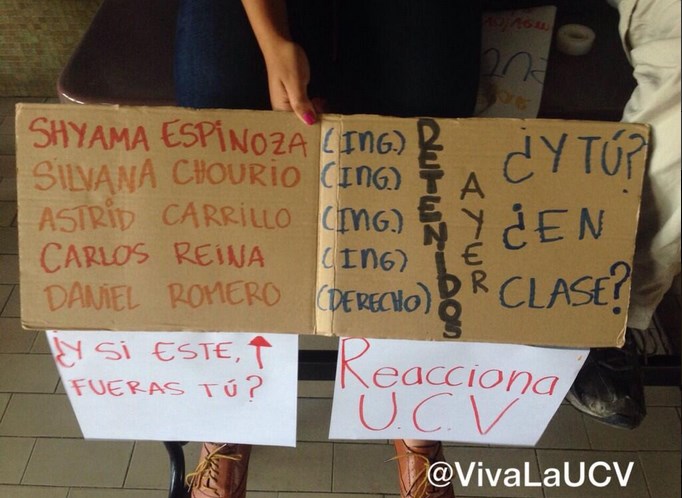 SHYAMA ESPINOZA (ING.)
SILVANA CHOURIO (ING.)
ASTRID CARRILLO (ING.)
CARLOS REINA (ING)
DANIEL ROMERO (DERECHO)
DETENIDOS
AYER
¿Y TÚ?
¿EN
CLASE?
¿Y SI ESTE, ↑
FUERAS TÚ?
Reacciona
U.C.V
@VivaLaUCV